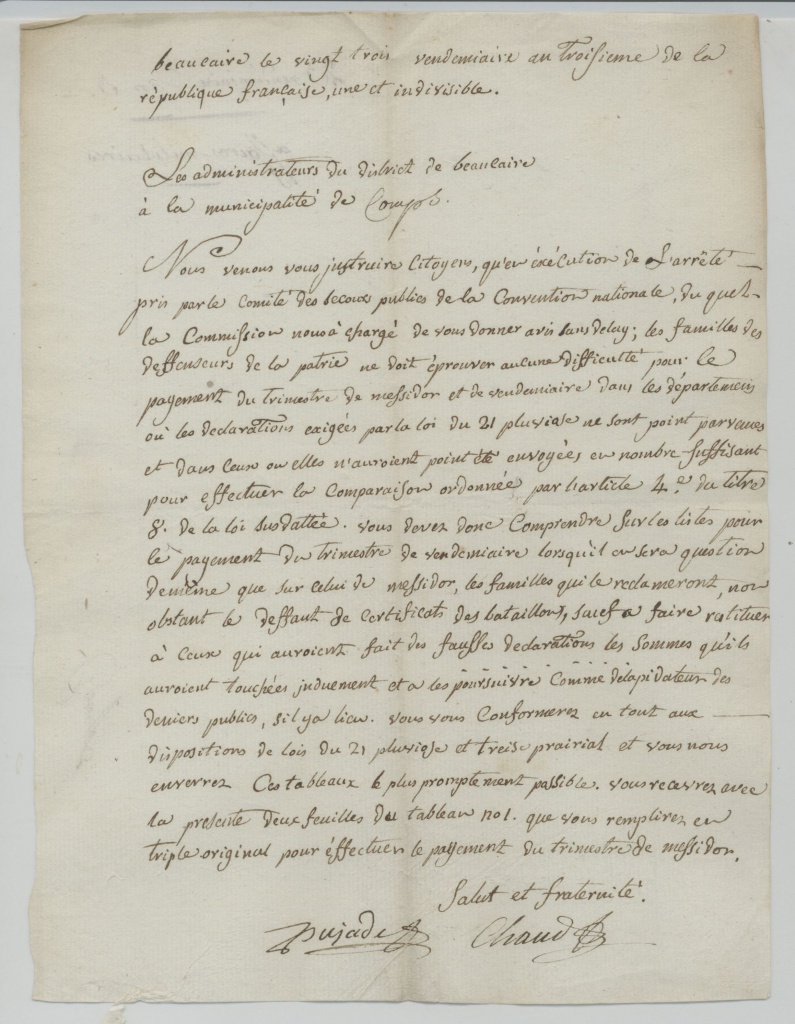 beaucaire le vingt trois vendemiaire an troisieme de la
république française, une et indivisible.
Les administrateurs du district de beaucaire
à la municipalité de Comps.
Nous venons vous justruire Citoyens, qu'en éxécution de L'arrêté
pris par le Comité des secours publics de la Convention nationale, du quel
la Commission nous à chargé de vous donner avis sans delay; les familles des
deffenseurs de la patrie ne doit éprouver aucune difficulté pour le
payement du trimestre de messidor et de vendemiaire dans les départemens
où les declarations exigées par la loi du 21 pluviose ne sont point parvenues
et dans Ceux ou elles n'auroient point été envoyées en nombre suffisant
pour effectuer la Comparaison ordonnée par l'article 4.e du titre
8. de la loi susdattée. vous devez donc Comprendre sur les listes pour
le payement du trimestre de vendemiaire lorsqu'il en sera question
demême que sur celui de messidor, les familles qui le reclameront, non
obstant le deffaut de certificats des bataillons, sauf a faire ratituer
à Ceux qui auroient fait des fausses declarations les sommes qu'ils
auroient touchées induement et a les poursuivre Comme délapidateur des
deniers publics, s'il y a lieu. vous vous Conformerez en tout aux
dispositions de lois du 21 pluviose et treise prairial et vous nous
enverrez Ces tableaux le plus promptement possible. vous recevrez avec
la presente deux feuilles du tableau no 1. que vous remplirez en
triple original pour éffectuer le payement du trimestre de messidor.
Salut et fraternité.
Pujade Chaud